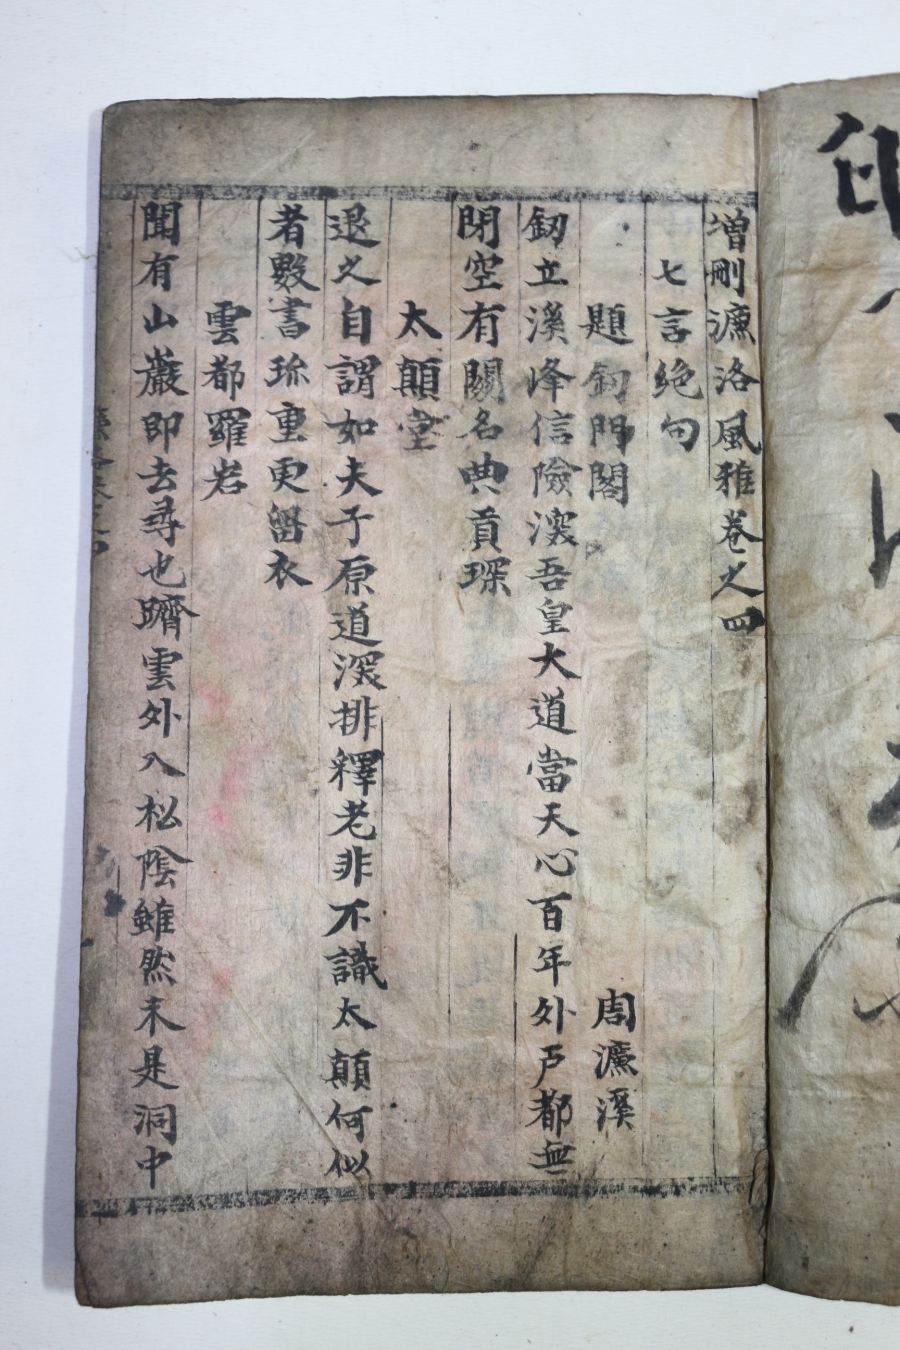 增刪濂洛風雅卷之四
七言絶句
題釰門閣 周濂溪
釰立溪峰信險深吾皇大道當天心百年外戶都無
閉空有關名典貢琛
太顛堂
退之自謂如夫子原道深排釋老非不識太顛何似
者數書珎重更留衣
雲都羅岩
聞有山巖即去尋也躋雲外入松陰雖然未是洞中